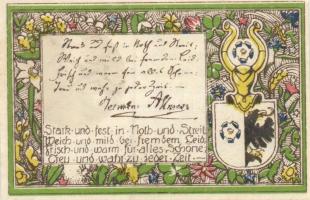 Stark und fest in Noth und Streit,
Weich und mild bei fremdem Leid,
Frisch und warm für alles Schöne,
Treu und wahr zu jeder Zeit,
Hermann
Stark·und·fest·in·Noth·und·Streit
Weich·und·mild·bei·fremdem·Leid
Frisch·und·warm·für·alles·Schöne
Treu·und·wahr·zu·jeder·Zeit·